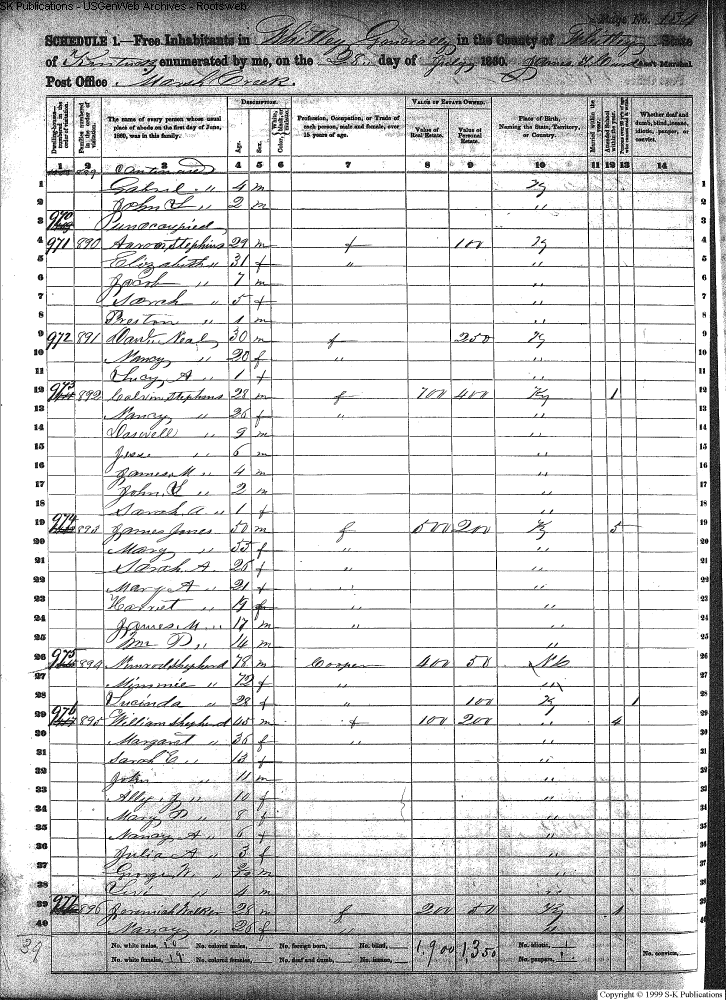 S-K Publications - USGenWeb Archives - Rootsweb
Page No. 134
SCHEDULE 1.—Free Inhabitants in Whitley Generally in the County of Whitley State
of Kentucky enumerated by me, on the 28 day of July, 1860. James Ass't Marshal
Post Office Marsh Creek.
Dwelling-houses numbered in the order of visitation. Families numbered in the order of visitation. The name of every person whose usual place of abode on the first day of June, 1860, was in this family. DESCRIPTION. Age. Sex. Color, White, black, or mulatto. Profession, Occupation, or Trade of each person, male and female, over 15 years of age. VALUE OF ESTATE OWNED. Value of Real Estate. Value of Personal Estate. Place of Birth, Naming the State, Territory, or Country. Married within the year. Attended School within the year. Whether deaf and dumb, blind, insane, idiotic, pauper, or convict.
1 2 3 4 5 6 7 8 9 10 11 12 13 14
889 Continued
1 Gabriel " 4 m Ky 1
2 John S " 2 m " 2
3 970 Unoccupied 3
4 971 890 Aaron Stephins 29 m f 100 Ky 4
5 Elizabeth " 31 f " " 5
6 Jacob " 7 m " 6
7 Sarah " 5 f " 7
8 Preston " 1 m " 8
9 972 891 Danl Neal 30 m f 250 Ky 9
10 Nancy " 20 f " " 10
11 Lucy A " 1 f " 11
12 973 892 Calvin Stephins 28 m f 700 400 Ky 1 12
13 Nancy " 26 f " " 13
14 " 9 m " 14
15 Jesse " 6 m " 15
16 James M " 4 m " 16
17 John S " 2 m " 17
18 Sarah A " 1 f " 18
19 974 893 James Jones 50 m f 500 200 Ky 5 19
20 Mary " 55 f " " 20
21 Sarah A. 26 f " " 21
22 Mary A " 21 f " " 22
23 Harriet " 19 f " " 23
24 James M " 17 m " " 24
25 Wm P " 14 m " 25
26 975 894 Nimrod Shepherd 78 m Cooper 400 50 NC 26
27 Mimmie " 72 f " " 27
28 Lucinda " 28 f " 100 Ky 1 28
29 976 895 William Shepherd 45 m f 100 200 " 4 29
30 Margaret " 36 f " " 30
31 Sarah E " 13 f " 31
32 John " 11 m " 32
33 Ally J " 10 f " 33
34 Mary P " 8 f " 34
35 Nancy A " 6 f " 35
36 Julia A " 3 f " 36
37 George W. " m " 37
38 Levi " 4 m " 38
39 977 896 Jeremiah Walker 28 m f 200 50 Ky 1 39
40 Nancy " 26 f " 40
39 No. white males, No. colored males, No. foreign born, No. blind, 1,900 1,350 No. idiotic, 1
No. white females, 19 No. colored females, No. deaf and dumb, No. insane, No. paupers, No. convicts,
Copyright © 1999 S-K Publications